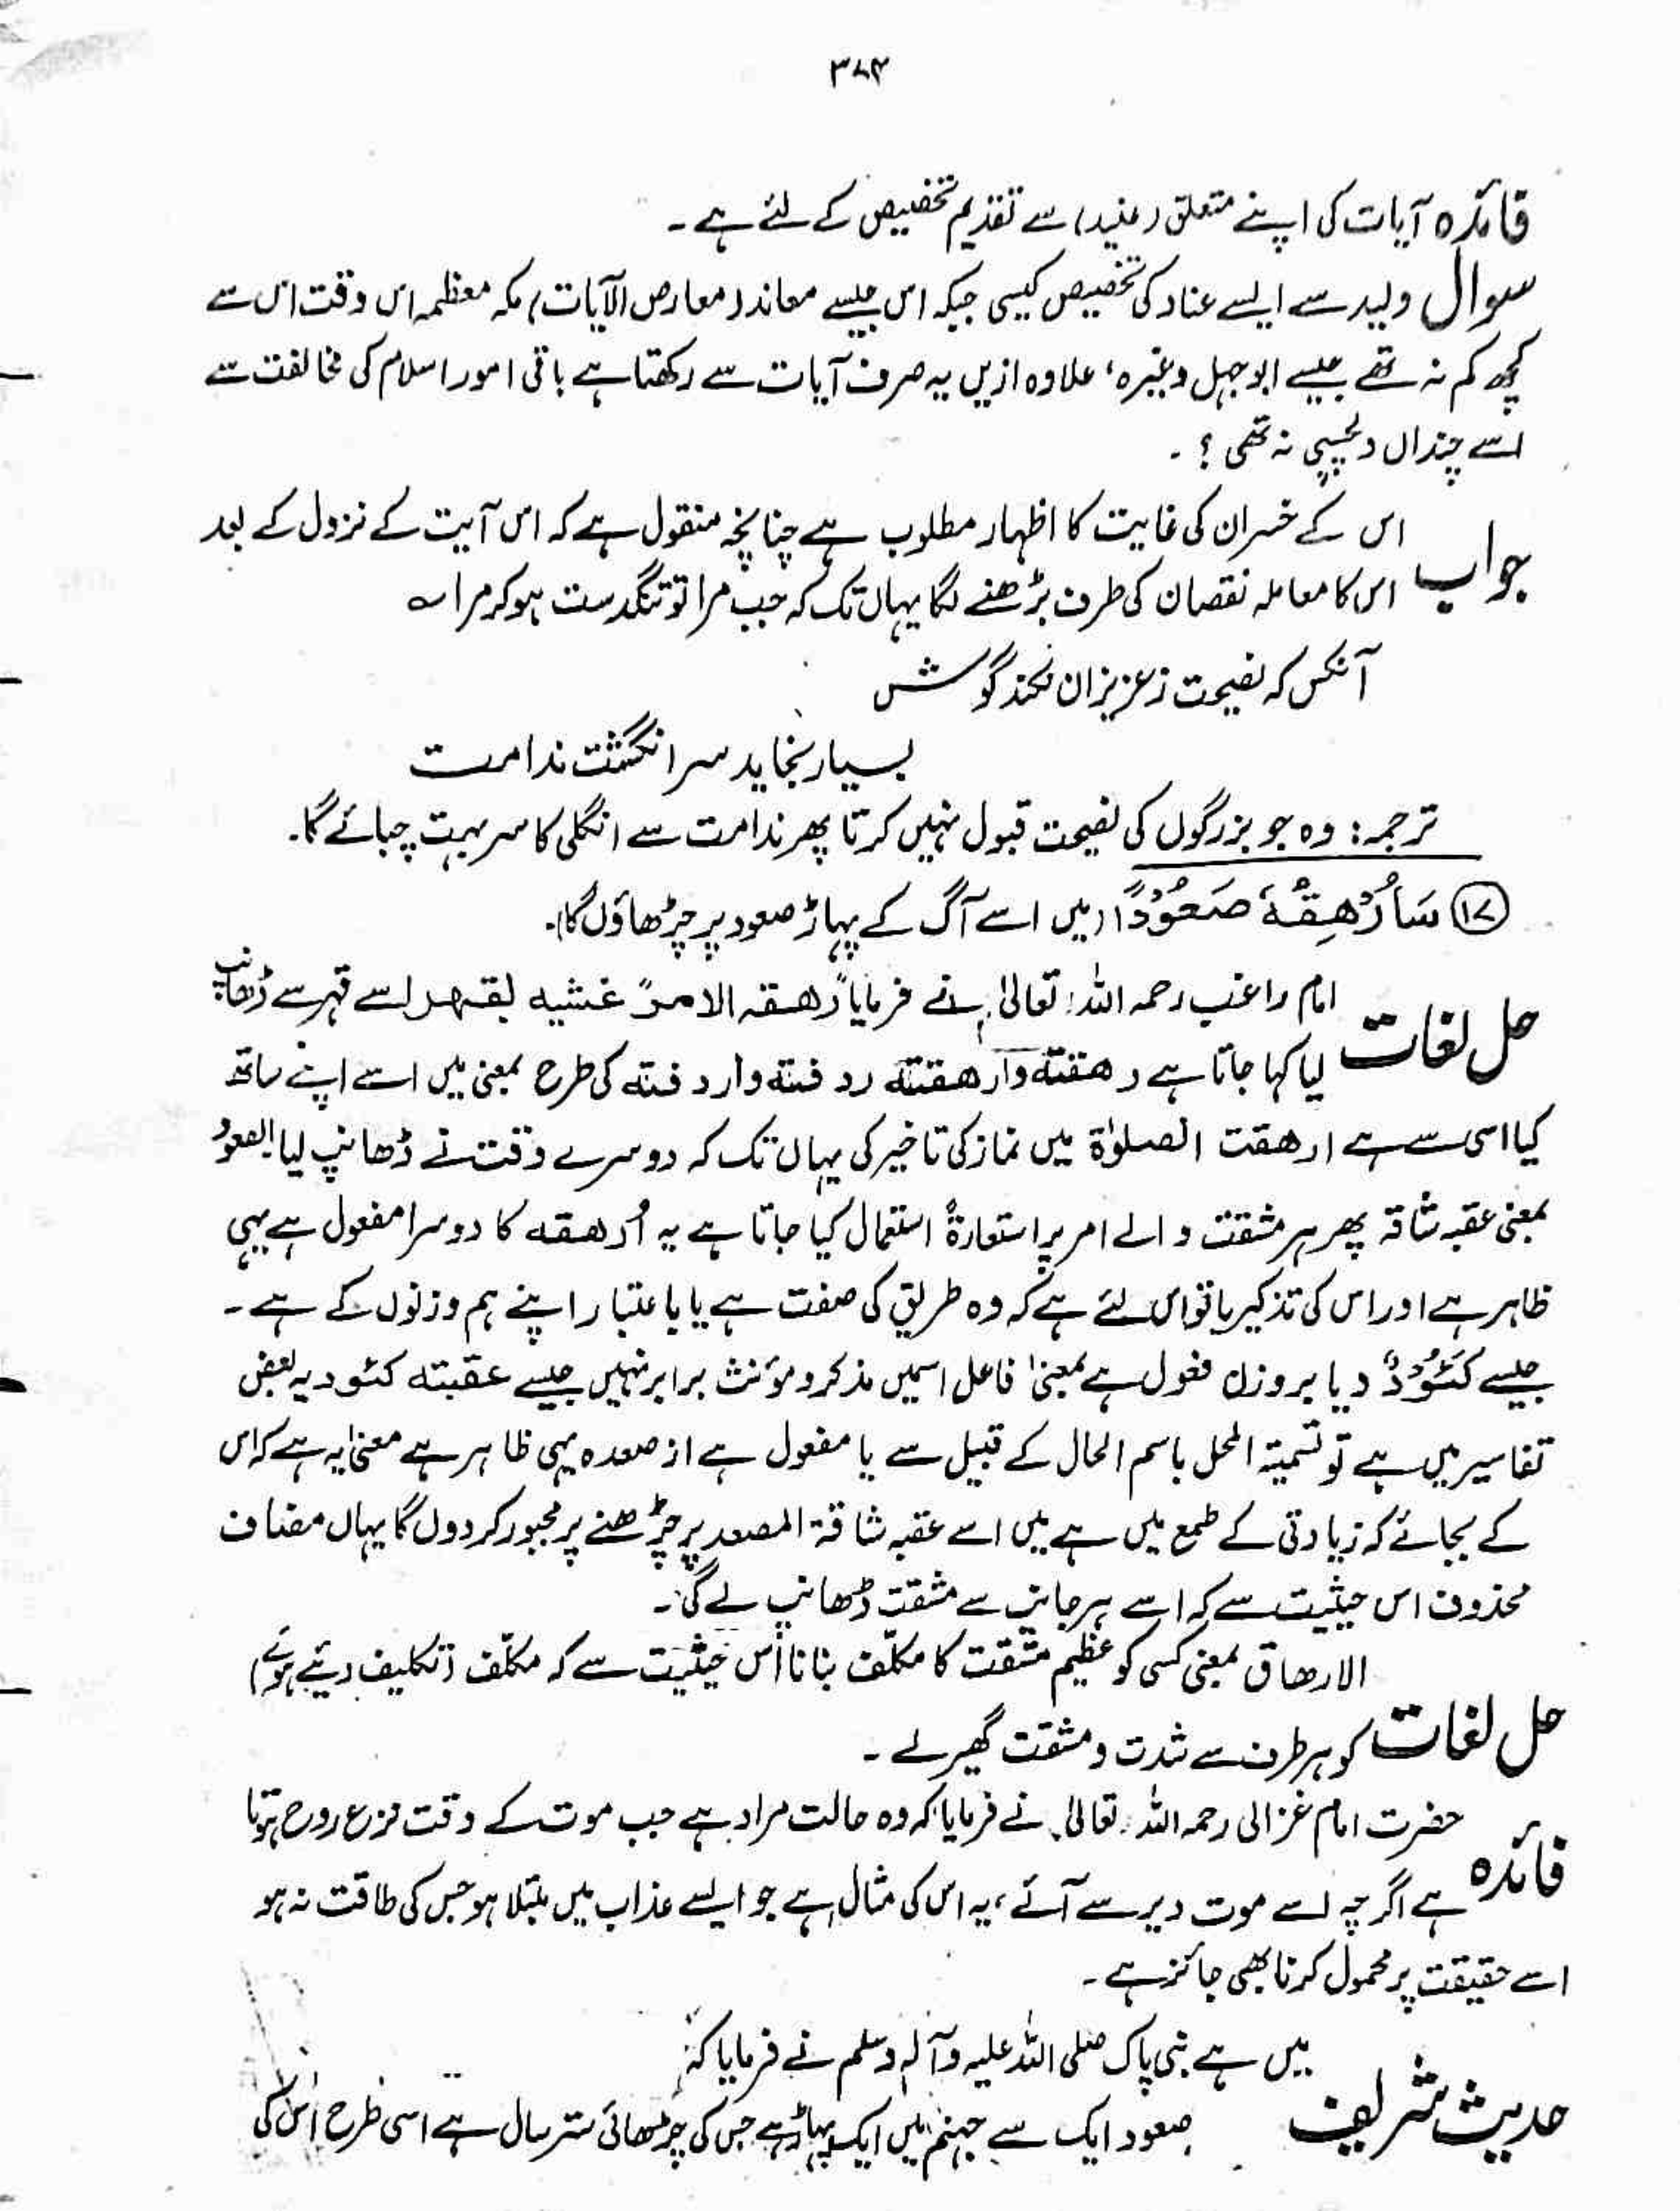 ۳۸۴
فائدہ آیات کی اپنے متعلق (عنید) سے تقدیم تخصیص کے لئے ہے۔
سوال ولید سے ایسے عناد کی تخصیص کیسی جبکہ اس جیسے معاند (معارض الآیات) مکہ معظمہ اس وقت اس سے
کچھ کم نہ تھے جیسے ابوجہل وغیرہ، علاوہ ازیں یہ صرف آیات سے رکھتا ہے باقی امور اسلام کی مخالفت سے
اسے چنداں دلچسپی نہ تھی؟۔
جواب اس کے خسران کی غایت کا اظہار مطلوب ہے چنانچہ منقول ہے کہ اس آیت کے نزول کے بعد
اس کا معاملہ نقصان کی طرف بڑھنے لگا یہاں تک کہ جب مرا تو تنگدست ہو کر مرا ؎
آنکس کہ نصیحت ز عزیزان نکند گوش
بسیار بخاید سر انگشت ندامت
ترجمہ: وہ جو بزرگوں کی نصیحت قبول نہیں کرتا پھر ندامت سے انگلی کا سر بہت چبائے گا۔
⑰ سَاُرْهِقُهٗ صَعُوْدًا (میں اسے آگ کے پہاڑ صعود پر چڑھاؤں گا)۔
حل لغات امام راغب رحمہ اللہ تعالیٰ نے فرمایا رھقہ الامر غشیہ بقھر اسے قہر سے ڈھانپ
لیا کہا جاتا ہے رھقتہ وارھقتہ ردفتہ واردفتہ کی طرح بمعنی میں اسے اپنے ساتھ
کیا اسی سے ہے ارھقت الصلوٰۃ میں نماز کی تاخیر کی یہاں تک کہ دوسرے وقت نے ڈھانپ لیا الصعود
بمعنی عقبہ شاقہ پھر ہر مشقت والے امر پر استعارۃً استعمال کیا جاتا ہے یہ اُرھقہ کا دوسرا مفعول ہے یہی
ظاہر ہے اور اس کی تذکیر یا تو اس لئے ہے کہ وہ طریق کی صفت ہے یا باعتبار اپنے ہم وزنوں کے ہے۔
جیسے کَئُوْدٌ دیا بروزن فعول ہے بمعنیٰ فاعل اسمیں مذکر و مؤنث برابر نہیں جیسے عقبتہ کئود یہ بعض
تفاسیر میں ہے تو تسمیۃ المحل باسم الحال کے قبیل سے یا مفعول ہے از صعدہ یہی ظاہر ہے معنیٰ یہ ہے کہ اس
کے بجائے کہ زیادتی کے طمع میں ہے میں اسے عقبہ شاقۃ المصعد پر چڑھنے پر مجبور کردوں گا یہاں مضاف
محذوف اس حیثیت سے کہ اسے ہر جانب سے مشقت ڈھانپ لے گی۔
الارھاق بمعنی کسی کو عظیم مشقت کا مکلّف بنانا اس حیثیت سے کہ مکلّف (تکلیف دیئے ہوئے)
حل لغات کو ہر طرف سے شدت و مشقت گھیر لے۔
فائدہ حضرت امام غزالی رحمہ اللہ تعالیٰ نے فرمایا کہ وہ حالت مراد ہے جب موت کے وقت نزع روح ہوتا
ہے اگرچہ اسے موت دیر سے آئے، یہ اس کی مثال ہے جو ایسے عذاب میں مبتلا ہو جس کی طاقت نہ ہو
اسے حقیقت پر محمول کرنا بھی جائز ہے۔
حدیث شریف میں ہے نبی پاک صلی اللہ علیہ وآلہ وسلم نے فرمایا کہ
صعود ایک سے جہنم میں ایک پہاڑ ہے جس کی چڑھائی ستر سال ہے اسی طرح اس کی